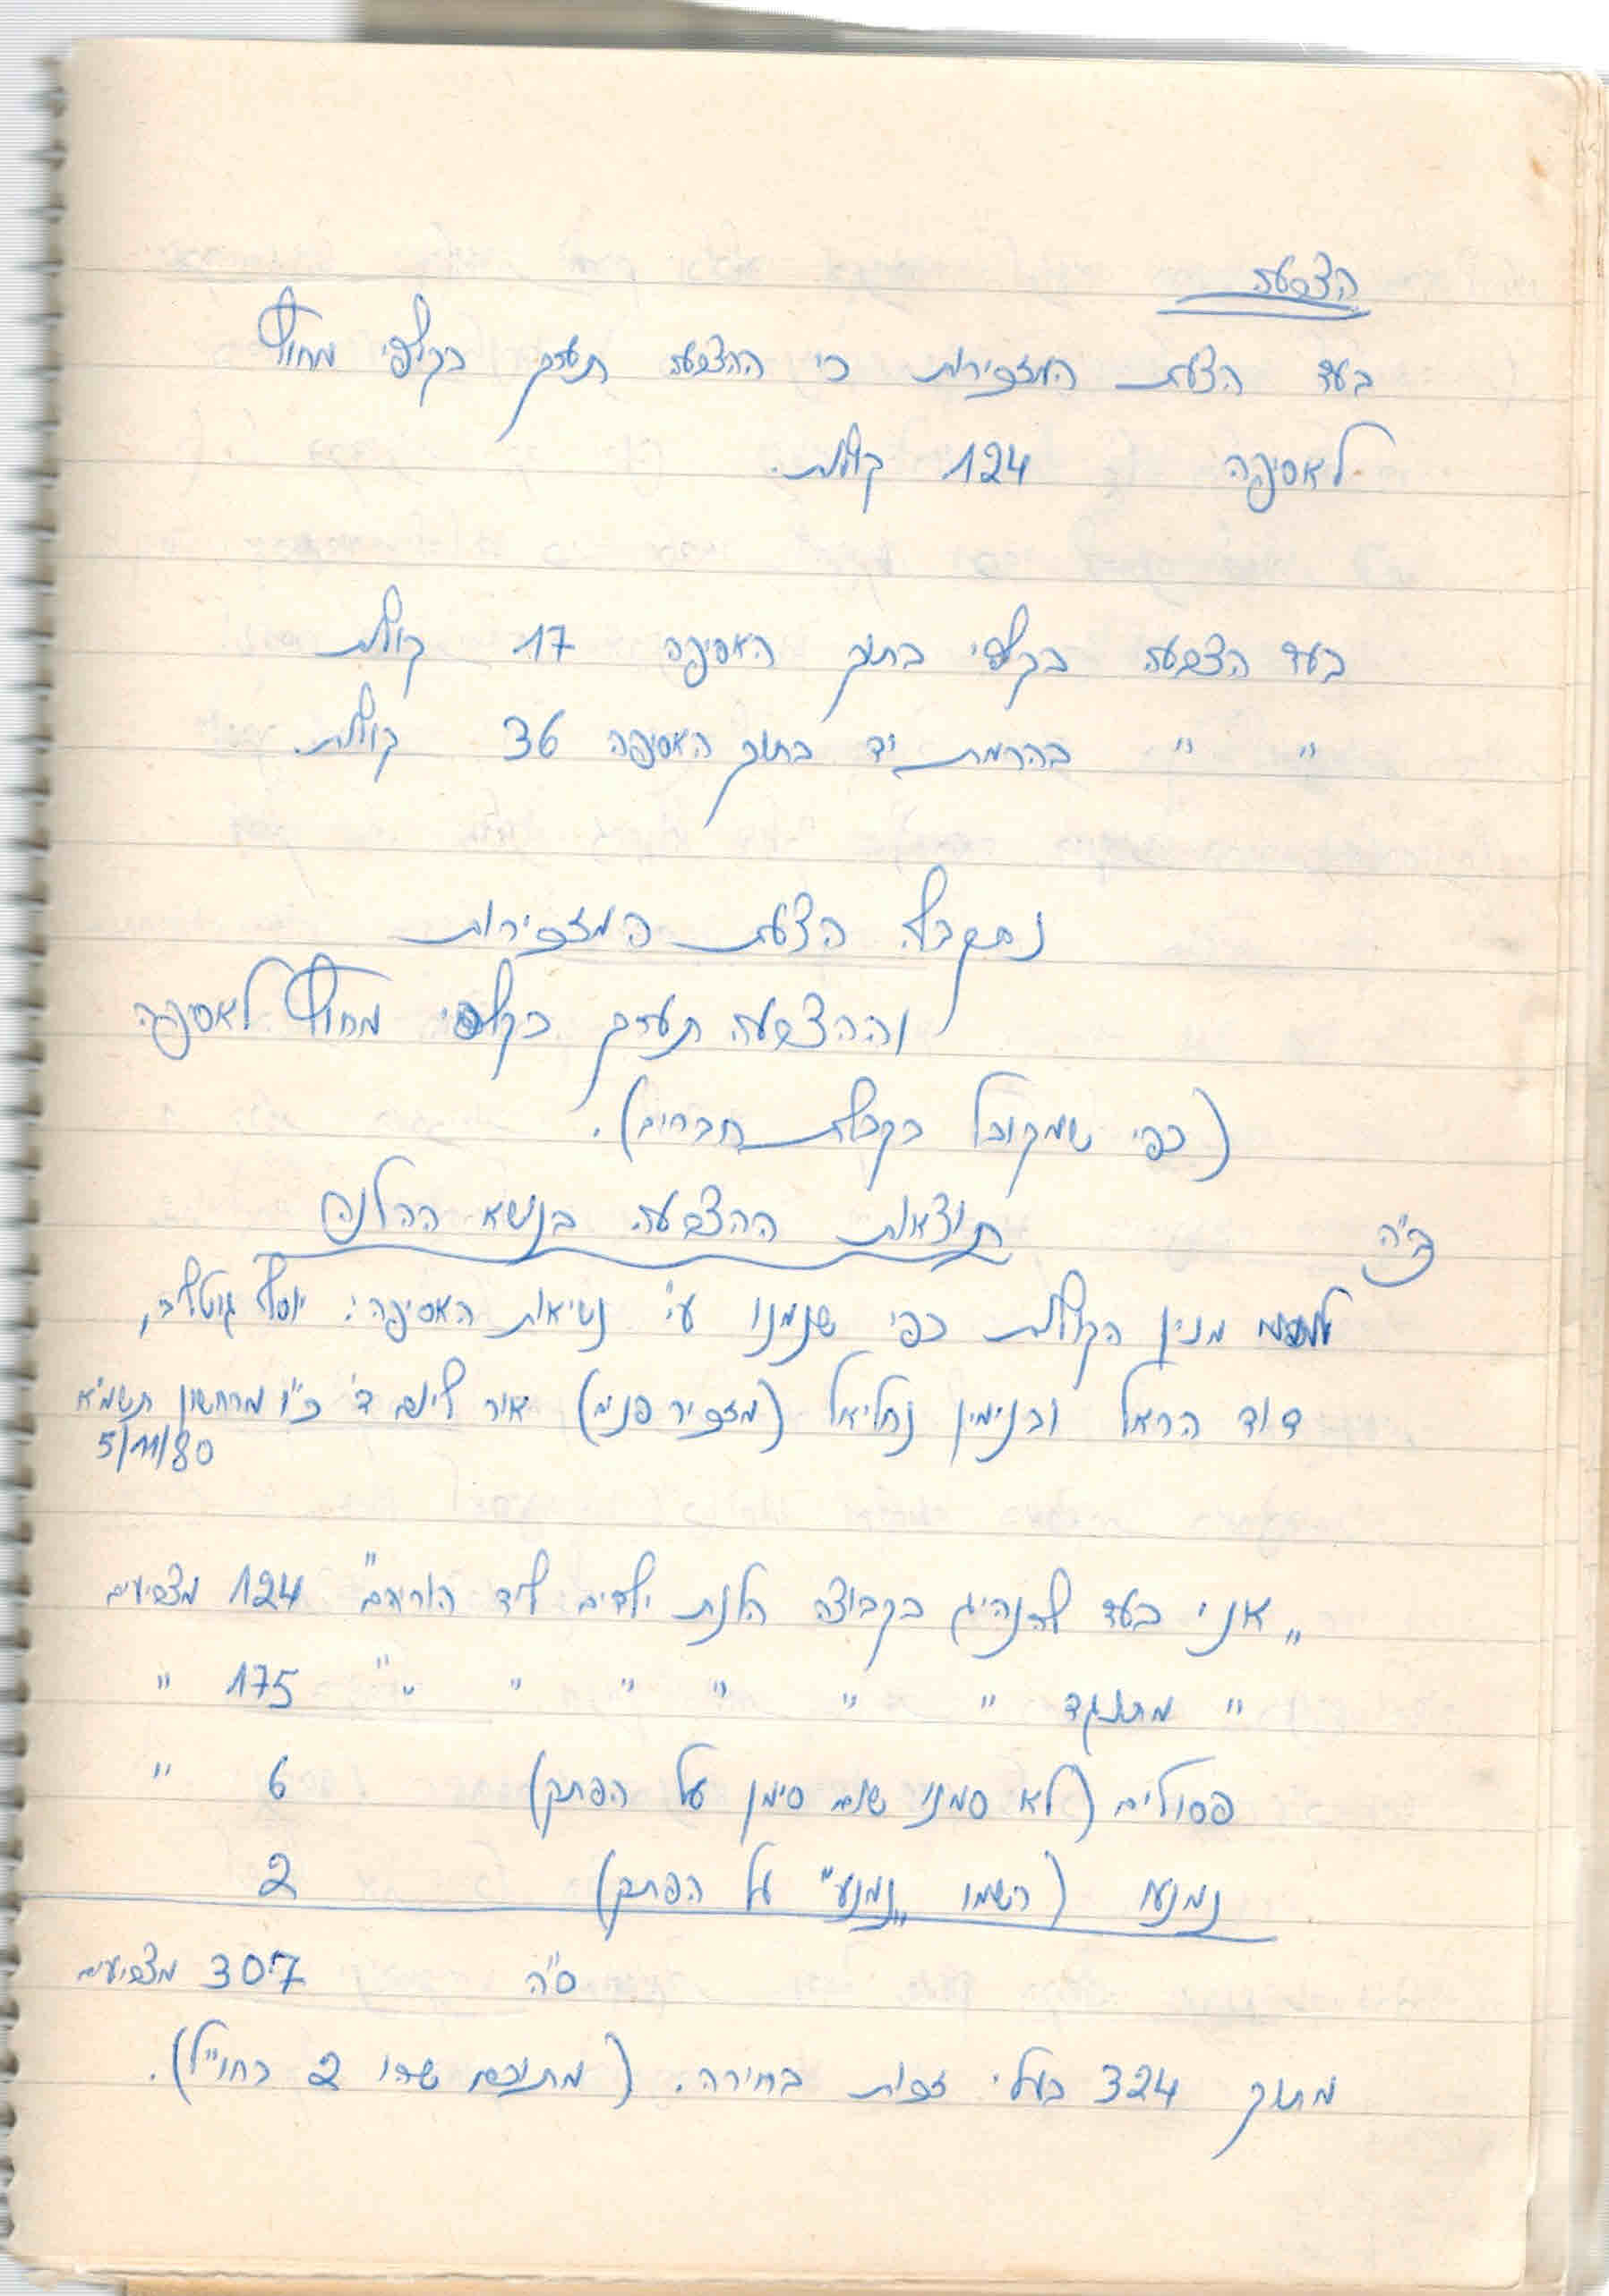 הצבעה
בעד הצעת המזכירות כי ההצבעה תערך בקלפי מחוץ
לאסיפה 124 קולות.
בעד הצבעה בקלפי בתוך האסיפה 17 קולות
" " בהרמת יד בתוך האסיפה 36 קולות.
נתקבלה הצעת המזכירות
וההצבעה תערך בקלפי מחוץ לאסיפה
(כפי שמקובל בקבלת חברים).
ב"ה
תוצאות ההצבעה בנושא ההלנה
מנין הקולות כפי שנמנו ע"י נשיאות האסיפה: יוסף גוטליב,
דוד הראל ובנימין נחליאל (מזכיר פנים) אור ליום ד' כ"ו מרחשון תשמ"א
5/11/80
„אני בעד להנהיג בקבוצה הלנת ילדים ליד הוריהם" 124 מצביעים
" מתנגד " " " " " " " 175 "
פסולים (לא סמנו שום סימן על הפתק) 6 "
נמנעו (רשמו „נמנע" על הפתק) 2
ס"ה 307 מצביעים
מתוך 324 בעלי זכות בחירה. (מתוכם שהו 2 בחו"ל).